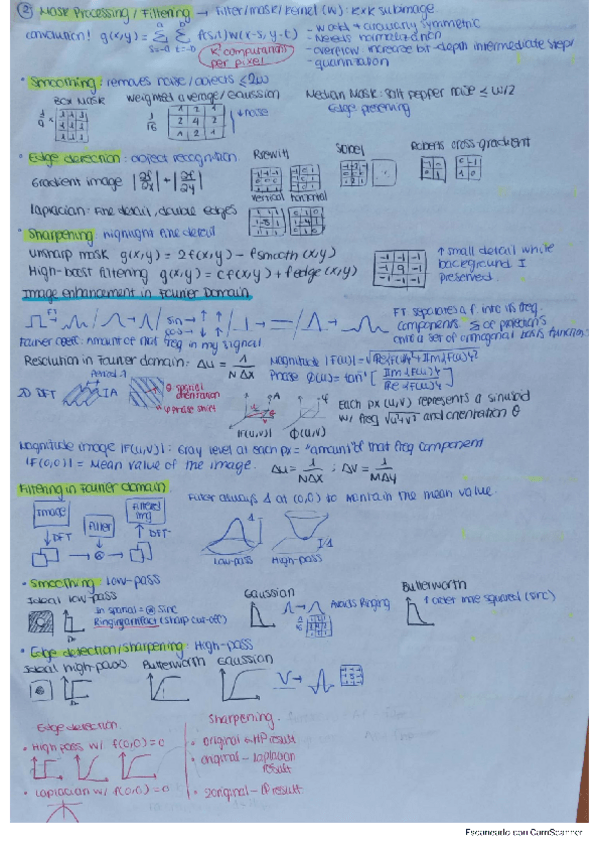 ② Mask Processing / Filtering → Filter/mask/kernel (w): kxk subimage
convolution! g(x,y) = Σ Σ f(s,t) w(x-s, y-t)
a
b
s=-a t=-b
K² computations per pixel
- Needs normalization
- overflow increase bit-depth intermediate steps
- quantization
• Smoothing: removes noise / objects ≤ 2w
Box Mask
weighted average/Gaussian
Median Mask: salt pepper noise ≤ w/2
Edge preserving
1/9
1 1 1
1 1 1
1 1 1
1/16
1 2 1
2 4 2
1 2 1
↓ noise
• Edge detection: object recognition.
Prewitt
Sobel
Roberts cross-gradient
Gradient image |∂f/∂x| + |∂f/∂y|
vertical horizontal
Laplacian: Fine detail, double edges
• Sharpening highlight fine detail
Unsharp mask g(x,y) = 2f(x,y) - fsmooth(x,y)
High-boost filtering g(x,y) = cf(x,y) + fedge(x,y)
-1 -1 -1
-1 9 -1
-1 -1 -1
↑ small detail while background I preserved.
Image enhancement in Fourier Domain
FT
sin → ↑ ↑
cos → ↓ ↑
FT separates a f. into its freq. components
Σ of projections
onto a set of orthogonal basis functions
Fourier coeff: Amount of that freq in my signal
Resolution in Fourier domain: Δu = 1/NΔx
Magnitude |F(u)| = √Re{F(u)}² + Im{F(u)}²
Phase φ(u) = tan⁻¹ [Im{F(u)}/Re{F(u)}]
2D DFT
Period
IA
θ spatial orientation
φ Phase shift
|F(u,v)|
φ(u,v)
Each px (u,v) represents a sinusoid
w/ freq √u²+v² and orientation θ
Magnitude image |F(u,v)|: Gray level at each px = "amount" of that freq component
|F(0,0)| = Mean value of the image. Δu = 1/NΔx ; Δv = 1/MΔy
Filtering in Fourier domain.
Filter always 1 at (0,0) to mantain the mean value.
Image
Filter
Filtered img
↓ DFT
↑ DFT⁻
Low-pass
High-pass
• Smoothing: Low-pass
Ideal low-pass
Gaussian
Butterworth
In spatial = sinc
Ringing artifact (sharp cut-off)
Avoids Ringing
↑ order more squared (sinc)
• Edge detection/sharpening: High-pass
Ideal high-pass Butterworth Gaussian
Edge detection.
• High pass w/ f(0,0)=0
• Laplacian w/ f(0,0)=0
Sharpening.
• original + HP result
• original - laplacian result
• 2original - LP result
Escaneado con CamScanner